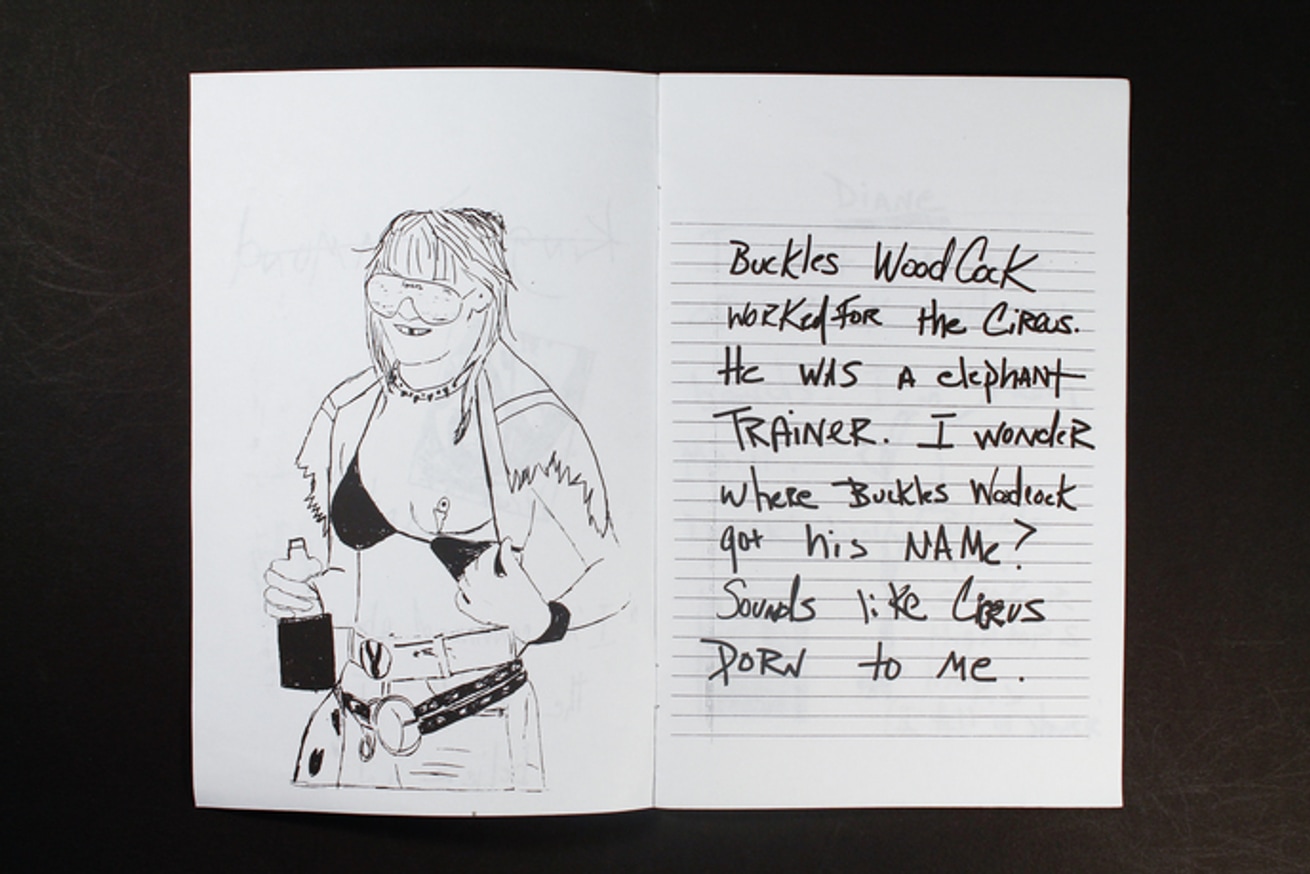 Diane
Buckles WoodCock
WORKed FOR the CiRcus.
He WAS A elephant
TRAiNeR. I wondeR
where Buckles Woodcock
got his NAMe?
Sounds like Circus
PORN to Me.